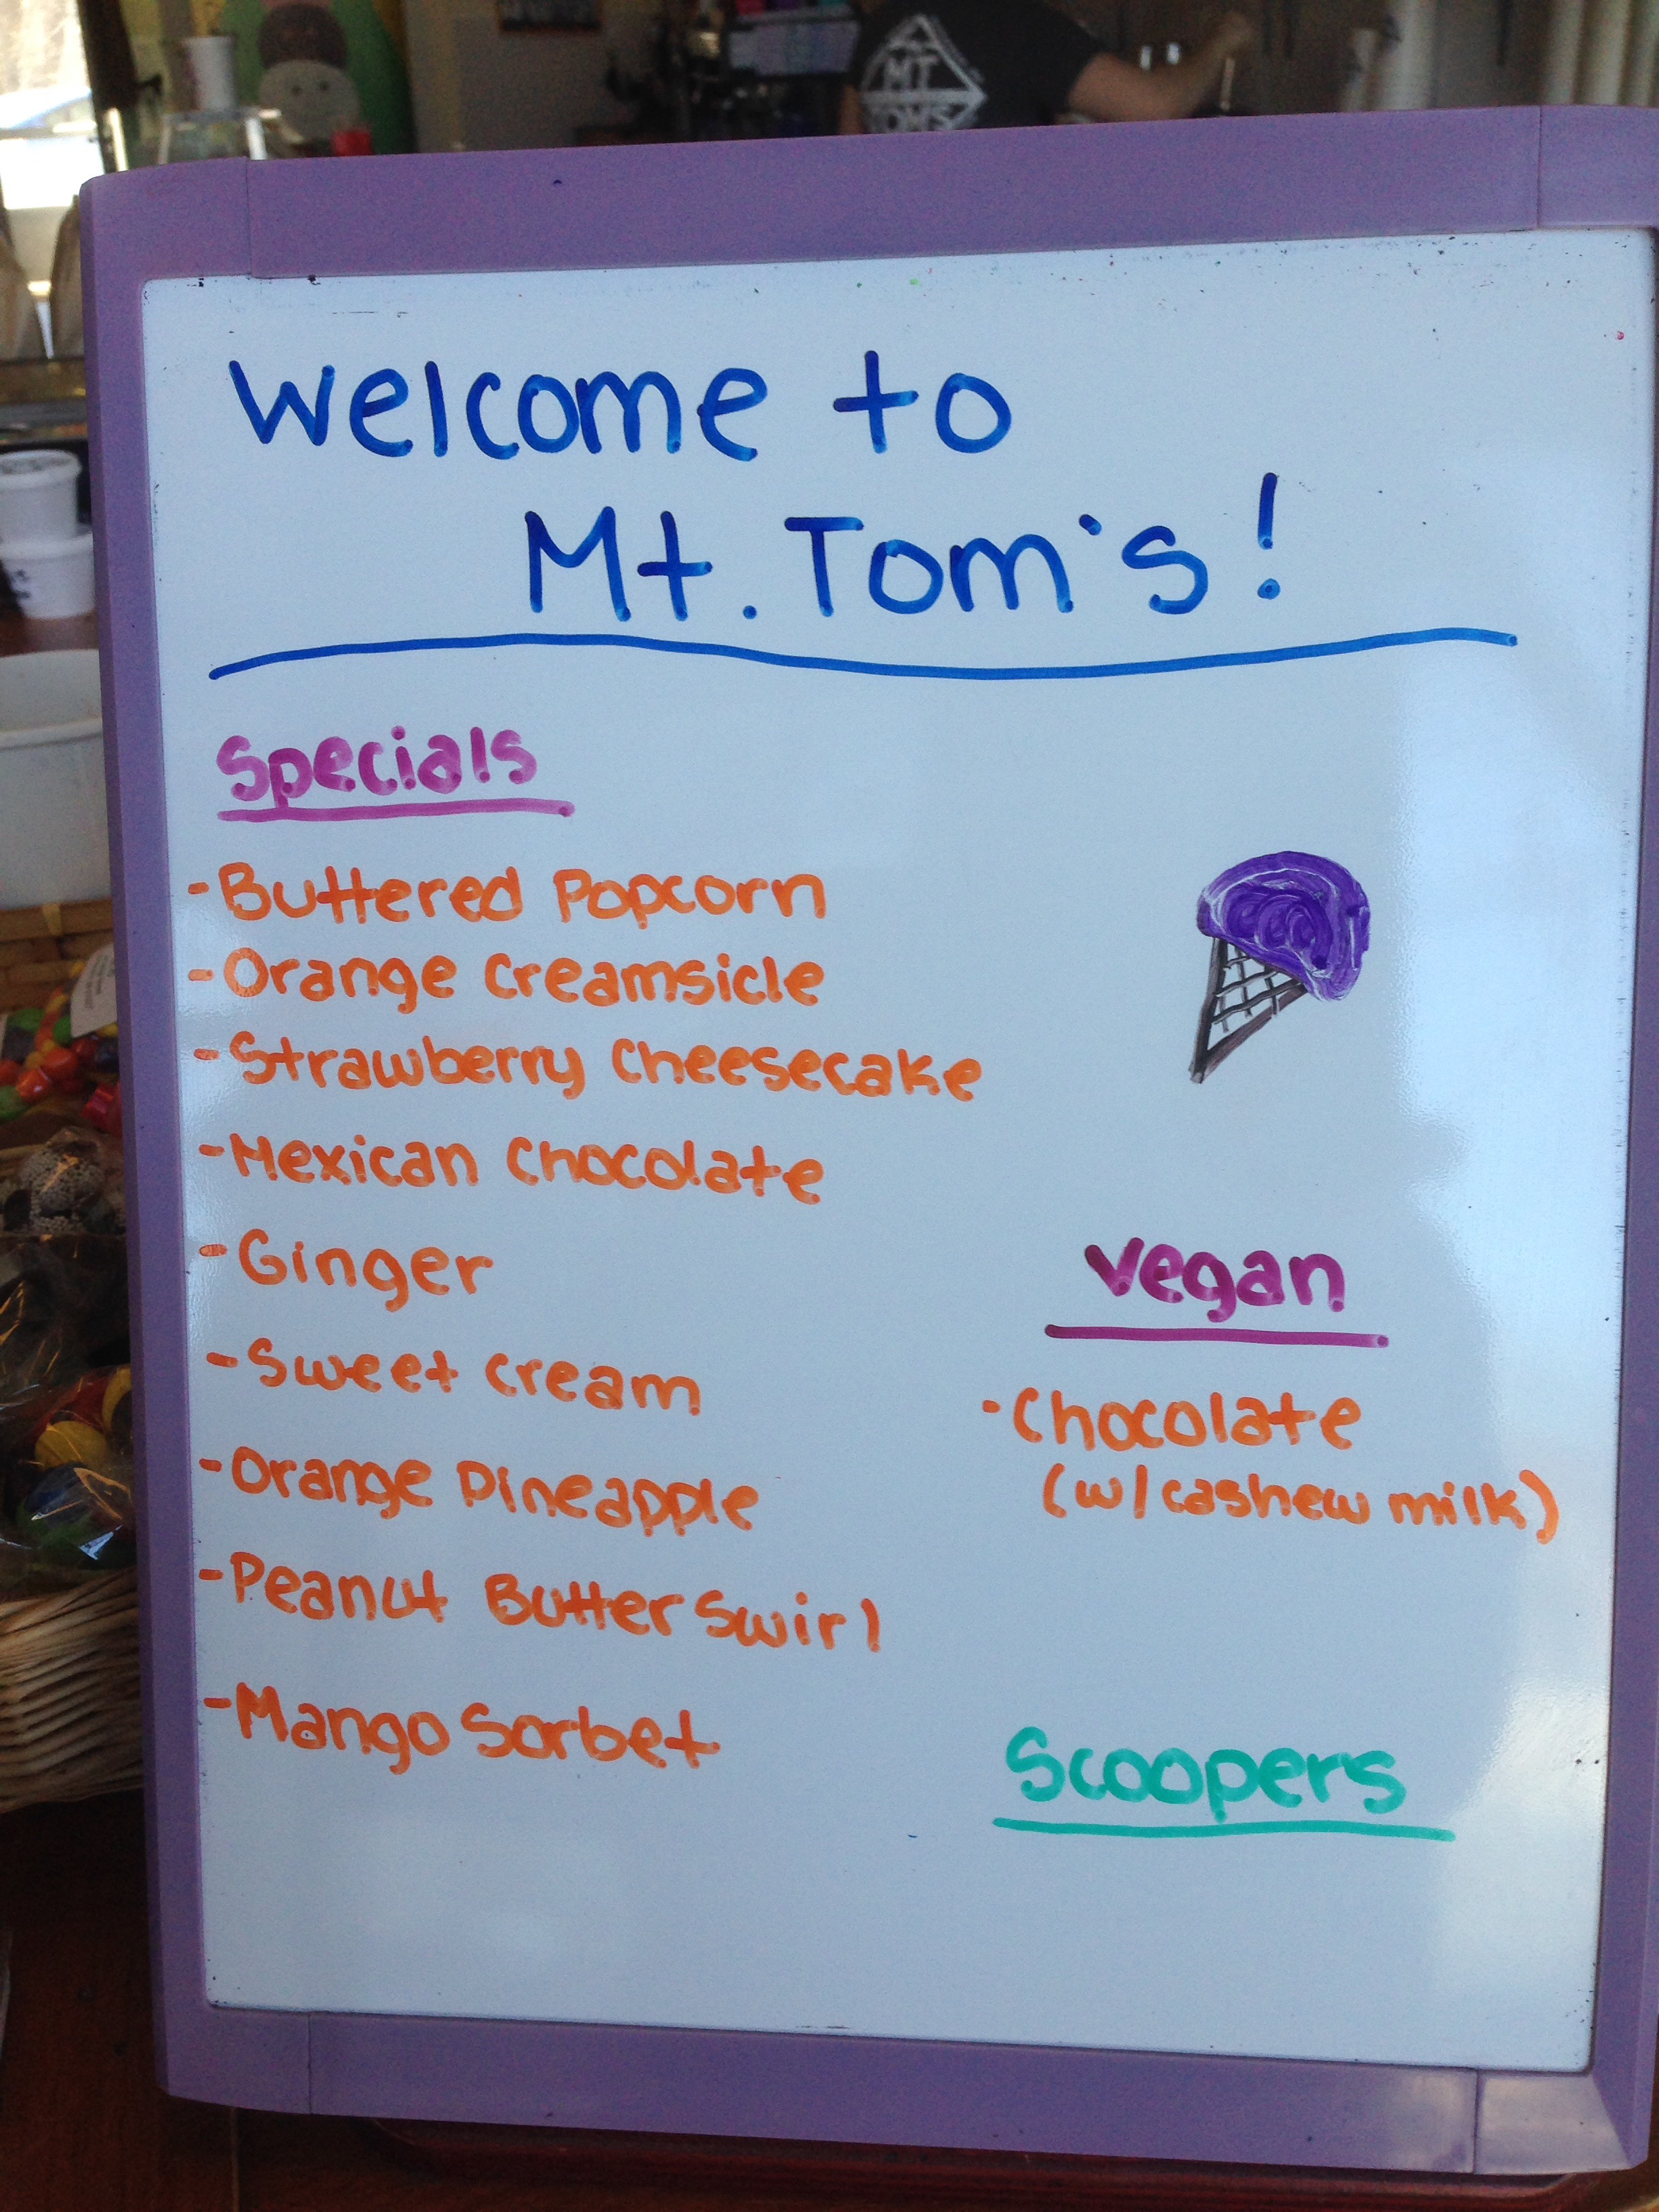 MT
TOM'S
Welcome to
Mt. Tom's!
Specials
-Buttered Popcorn
-Orange Creamsicle
-Strawberry Cheesecake
-Mexican Chocolate
-Ginger
-Sweet Cream
-Orange Pineapple
-Peanut Butter Swirl
-Mango Sorbet
Vegan
-Chocolate
(w/cashew milk)
Scoopers